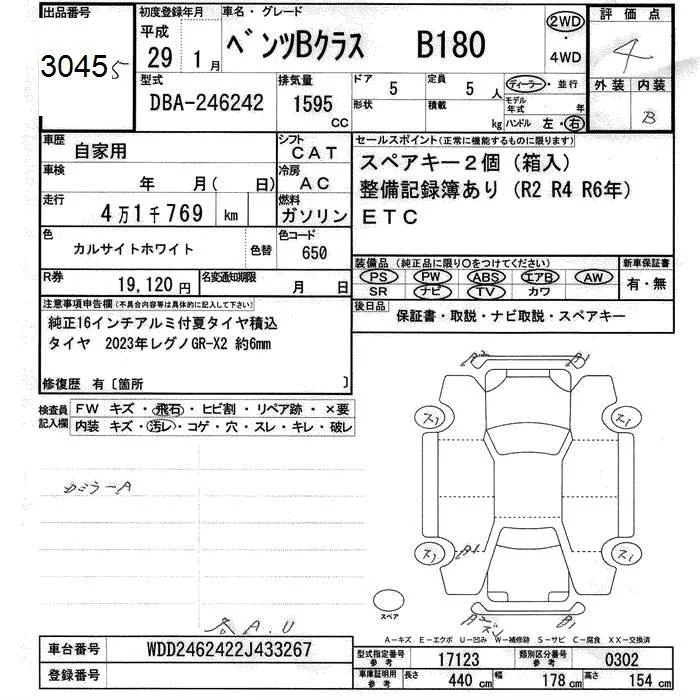 出品番号 初度登録年月 車名・グレード 評価点
3045 5 平成 29年 1月 ベンツBクラス B180 2WD・4WD 4
型式 排気量 ドア 5 定員 5人 ディーラー・並行 外装 内装
DBA-246242 1595 CC 形状 積載 kg モデル年式 年 B
ハンドル 左・右
車歴 自家用 シフト CAT セールスポイント(正常に機能するものに限ります)
車検 年 月( 日) 冷房 AC スペアキー2個(箱入)
走行 4万1千769 km 燃料 ガソリン 整備記録簿あり(R2 R4 R6年)
色 カルサイトホワイト 色替 色コード 650 ETC
R券 19,120円 名変通知期限 月 日 装備品(純正品に限り○をつけてください) 新車保証書
PS PW ABS エアB AW 有・無
SR ナビ TV カワ
注意事項申告欄(不具合内容等は具体的に記入して下さい) 後日品 保証書・取説・ナビ取説・スペアキー
純正16インチアルミ付夏タイヤ積込
タイヤ 2023年レグノGR-X2 約6mm
修復歴 有〔箇所 〕
検査員記入欄 FW キズ・飛石・ヒビ割・リペア跡・×要
内装 キズ・汚レ・コゲ・穴・スレ・キレ・破レ
A2 A1
スリ スリ
カミラーA
スリ A1 スリ
スペア
各A.U A2 B1
A-キズ E-エクボ U-凹み W-補修跡 S-サビ C-腐食 XX-交換済
車台番号 WDD2462422J433267 型式指定番号 参考 17123 類別区分番号 参考 0302
登録番号 車庫証明用 参考 長さ 440 cm 幅 178 cm 高さ 154 cm